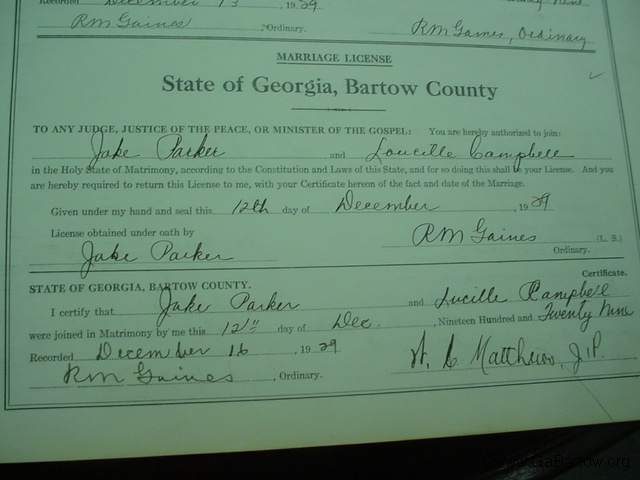 Recorded December 13, 1929
RM Gaines, Ordinary. RM Gaines, Ordinary
MARRIAGE LICENSE
State of Georgia, Bartow County
TO ANY JUDGE, JUSTICE OF THE PEACE, OR MINISTER OF THE GOSPEL: You are hereby authorized to join:
Jake Parker and Loucille Campbell
in the Holy State of Matrimony, according to the Constitution and Laws of this State, and for so doing this shall be your License. And you
are hereby required to return this License to me, with your Certificate hereon of the fact and date of the Marriage.
Given under my hand and seal this 12th day of December, 1929
License obtained under oath by RM Gaines (L. S.)
Jake Parker Ordinary.
Certificate.
STATE OF GEORGIA, BARTOW COUNTY.
I certify that Jake Parker and Lucille Campbell
were joined in Matrimony by me this 12" day of Dec., Nineteen Hundred and Twenty Nine
Recorded December 16, 1929 W. C. Matthews, J.P.
RM Gaines, Ordinary.